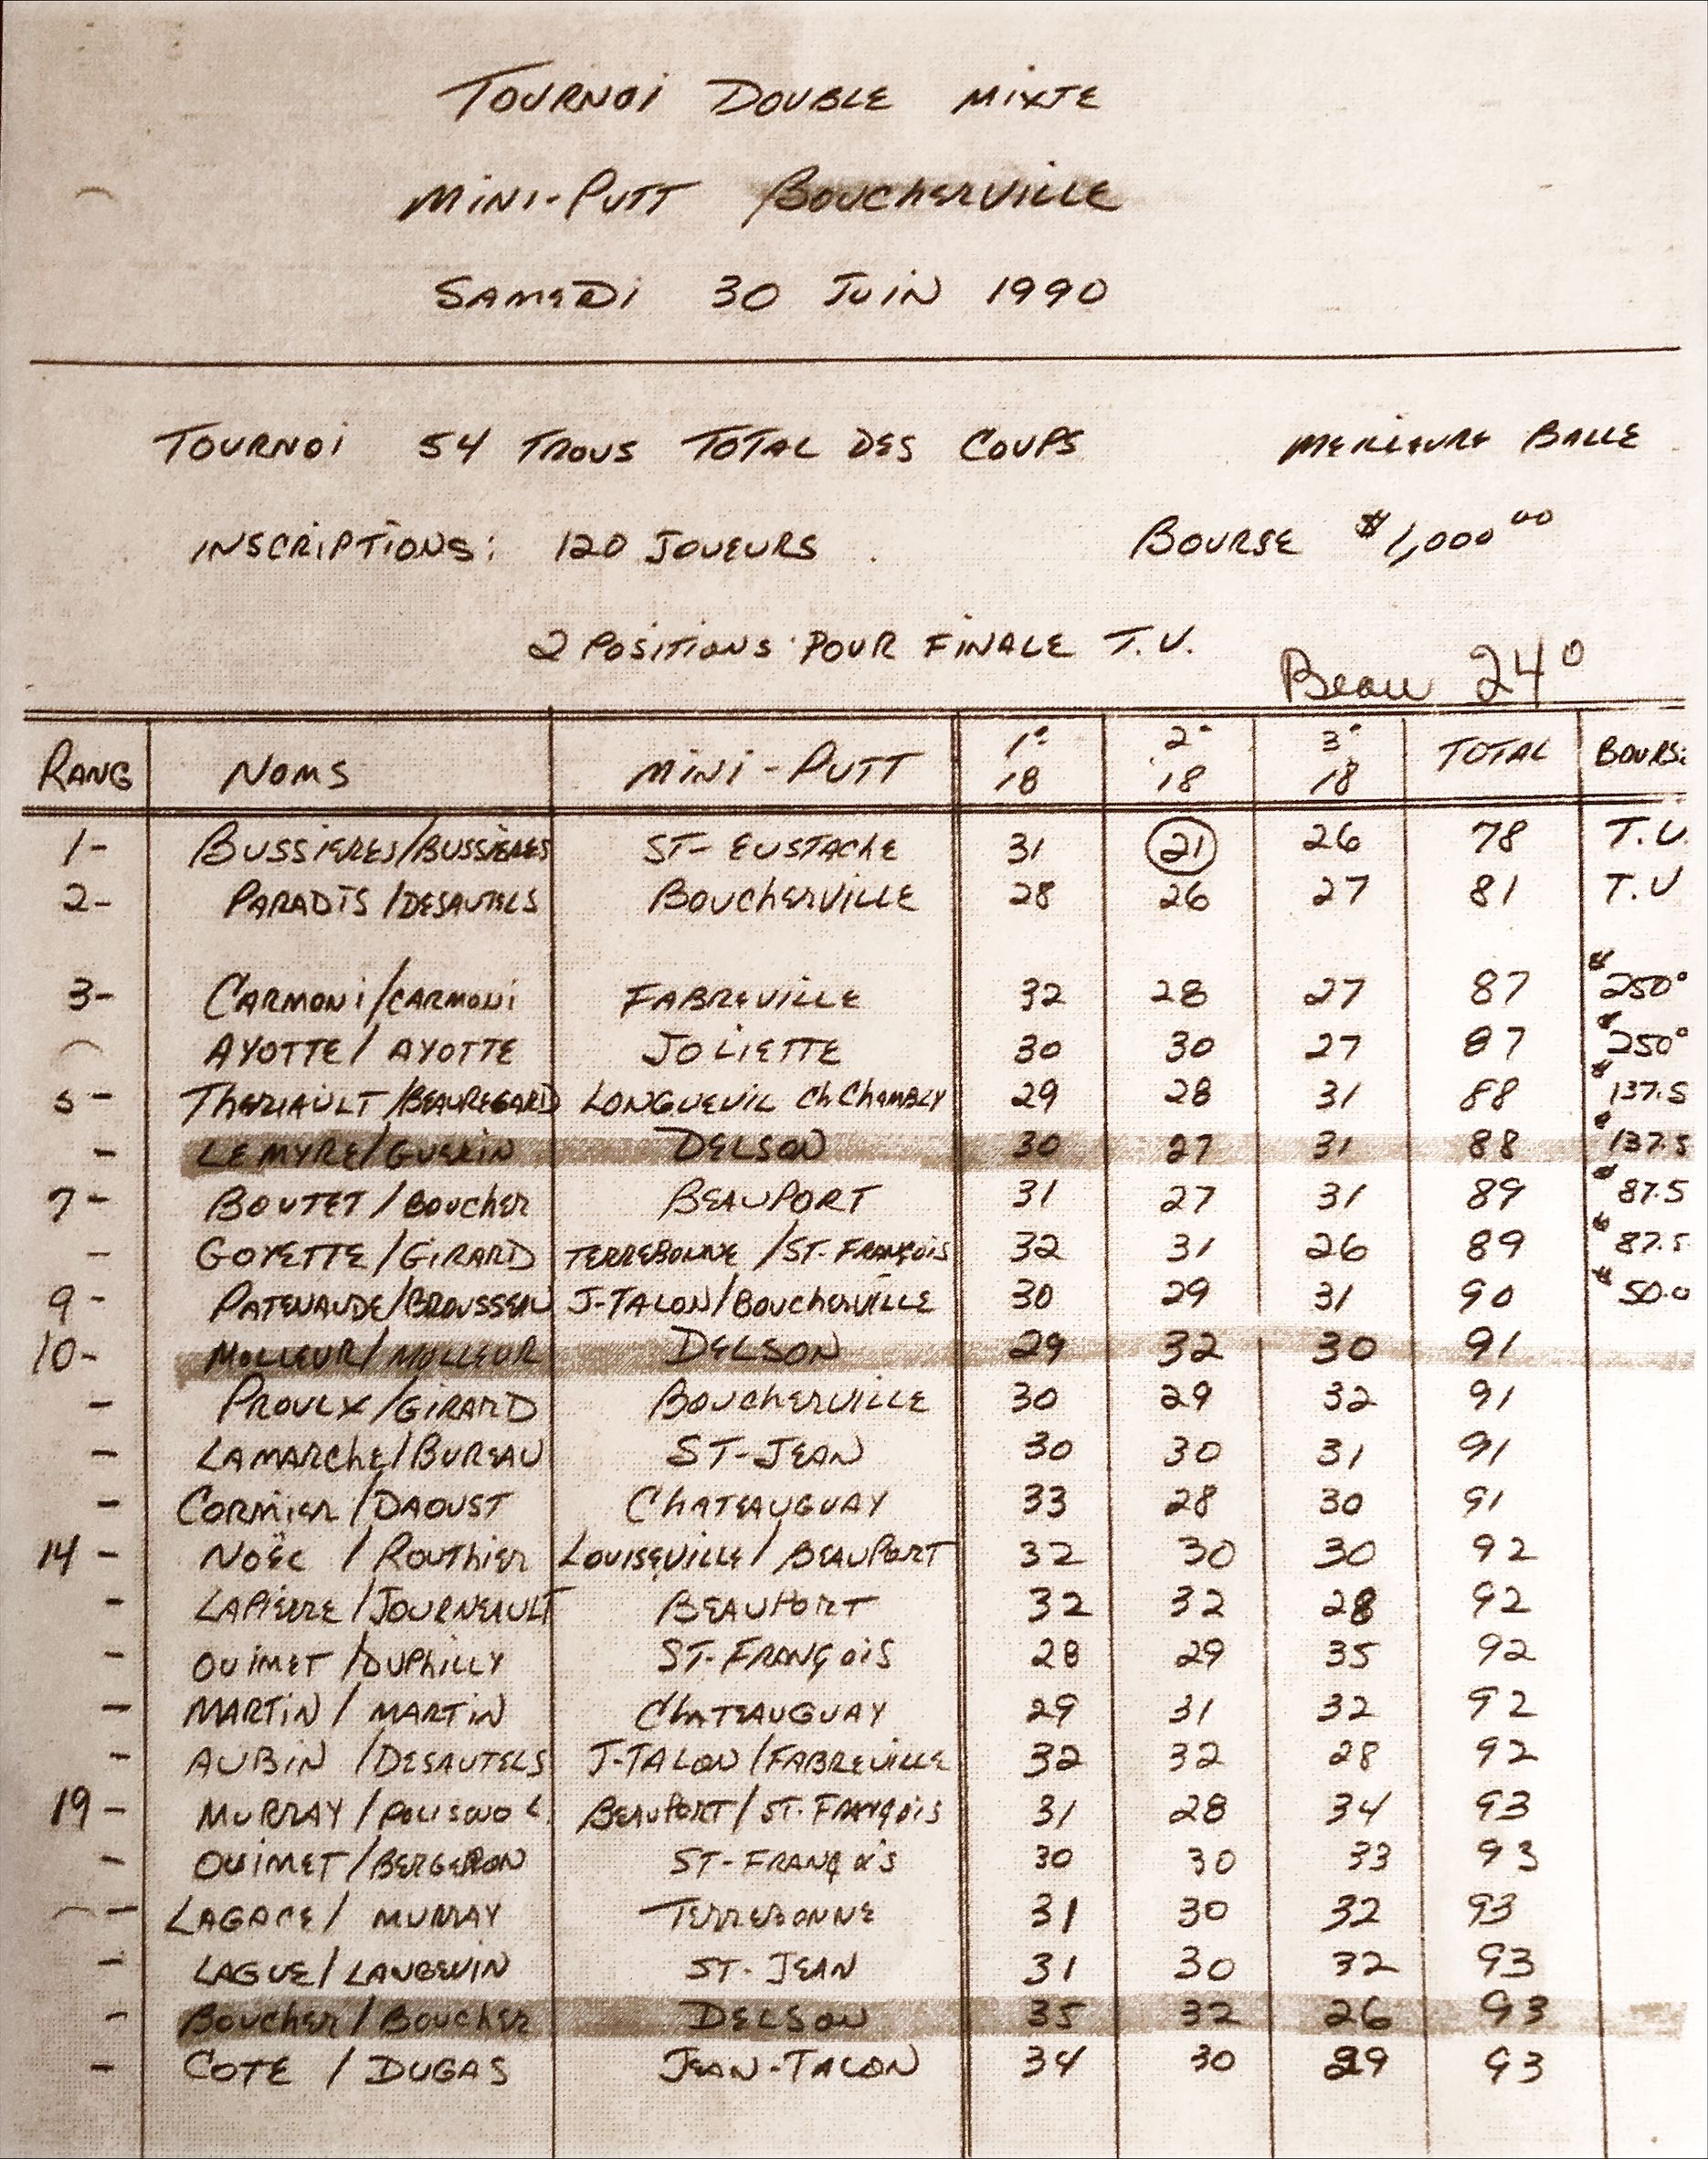 TOURNOI DOUBLE MIXTE
MINI-PUTT BOUCHERVILLE
SAMEDI 30 JUIN 1990
TOURNOI 54 TROUS TOTAL DES COUPS MEILLEURE BALLE
INSCRIPTIONS: 120 JOUEURS. BOURSE $1,000 00
2 POSITIONS POUR FINALE T.V.
Beau 24°
RANG NOMS MINI-PUTT 1e 18 2e 18 3e 18 TOTAL BOURS:
1- BUSSIERES/BUSSIÈRES ST-EUSTACHE 31 21 26 78 T.V.
2- PARADIS/DESAUTELS BOUCHERVILLE 28 26 27 81 T.V
3- CARMONI/CARMONI FABREVILLE 32 28 27 87 $250°
AYOTTE/AYOTTE JOLIETTE 30 30 27 87 $250°
5- THERIAULT/BEAUREGARD LONGUEUIL Ch CHAMBLY 29 28 31 88 $137.5
- LEMYRE/GUERIN DELSON 30 27 31 88 $137.5
7- BOUTET/BOUCHER BEAUPORT 31 27 31 89 $87.5
- GOYETTE/GIRARD TERREBONNE/ST-FRANÇOIS 32 31 26 89 $87.5
9- PATENAUDE/BROUSSEAU J-TALON/BOUCHERVILLE 30 29 31 90 $50.0
10- MOLLEUR/MOLLEUR DELSON 29 32 30 91
- PROULX/GIRARD BOUCHERVILLE 30 29 32 91
- LAMARCHE/BUREAU ST-JEAN 30 30 31 91
- CORMIER/DAOUST CHATEAUGUAY 33 28 30 91
14- NOËL/ROUTHIER LOUISEVILLE/BEAUPORT 32 30 30 92
- LAPIERRE/JOURNEAULT BEAUPORT 32 32 28 92
- OUIMET/DUPHILLY ST-FRANÇOIS 28 29 35 92
- MARTIN/MARTIN CHATEAUGUAY 29 31 32 92
- AUBIN/DESAUTELS J-TALON/FABREVILLE 32 32 28 92
19- MURRAY/ BEAUPORT/ST-FRANÇOIS 31 28 34 93
- OUIMET/BERGERON ST-FRANÇOIS 30 30 33 93
- LAGACE/MURRAY TERREBONNE 31 30 32 93
- LAGUE/LANGEVIN ST-JEAN 31 30 32 93
- BOUCHER/BOUCHER DELSON 35 32 26 93
- COTE/DUGAS JEAN-TALON 34 30 29 93